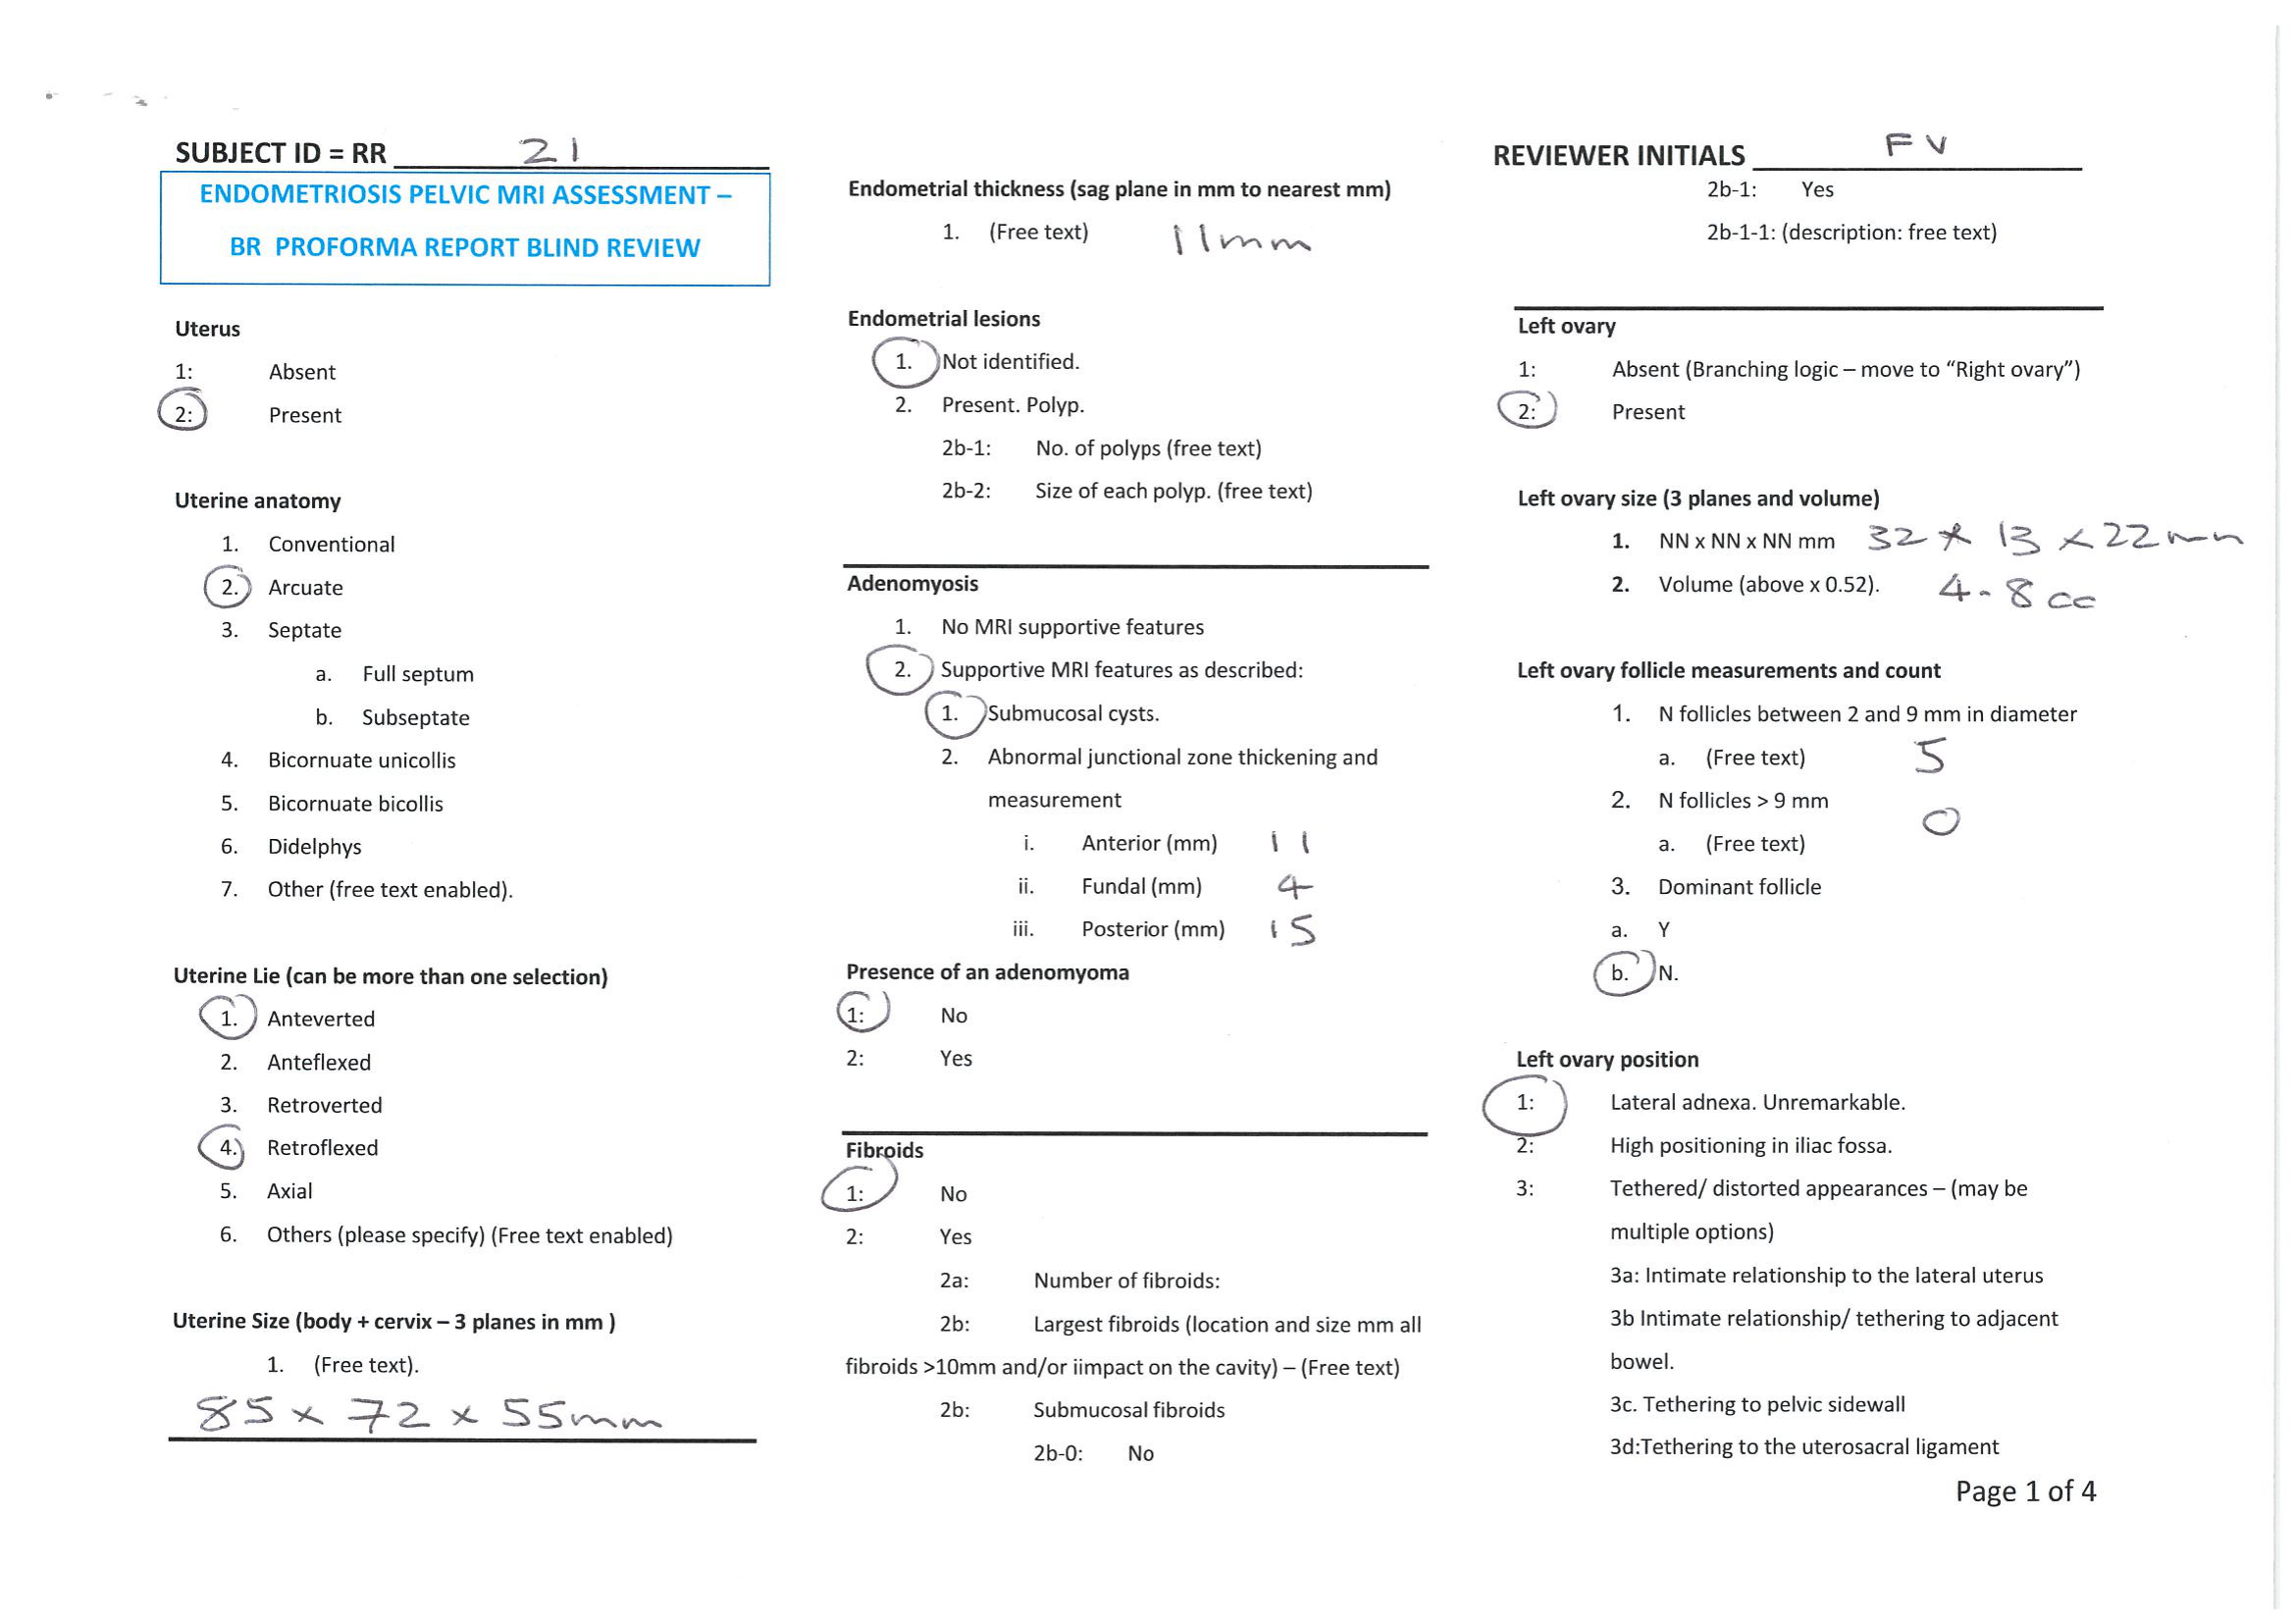 SUBJECT ID = RR 21
ENDOMETRIOSIS PELVIC MRI ASSESSMENT –
BR PROFORMA REPORT BLIND REVIEW
Uterus
1: Absent
2: Present
Uterine anatomy
1. Conventional
2. Arcuate
3. Septate
a. Full septum
b. Subseptate
4. Bicornuate unicollis
5. Bicornuate bicollis
6. Didelphys
7. Other (free text enabled).
Uterine Lie (can be more than one selection)
1. Anteverted
2. Anteflexed
3. Retroverted
4. Retroflexed
5. Axial
6. Others (please specify) (Free text enabled)
Uterine Size (body + cervix – 3 planes in mm )
1. (Free text).
85 x 72 x 55mm
Endometrial thickness (sag plane in mm to nearest mm)
1. (Free text) 11mm
Endometrial lesions
1. Not identified.
2. Present. Polyp.
2b-1: No. of polyps (free text)
2b-2: Size of each polyp. (free text)
Adenomyosis
1. No MRI supportive features
2. Supportive MRI features as described:
1. Submucosal cysts.
2. Abnormal junctional zone thickening and
measurement
i. Anterior (mm) 11
ii. Fundal (mm) 4
iii. Posterior (mm) 15
Presence of an adenomyoma
1: No
2: Yes
Fibroids
1: No
2: Yes
2a: Number of fibroids:
2b: Largest fibroids (location and size mm all
fibroids >10mm and/or iimpact on the cavity) – (Free text)
2b: Submucosal fibroids
2b-0: No
REVIEWER INITIALS FV
2b-1: Yes
2b-1-1: (description: free text)
Left ovary
1: Absent (Branching logic – move to “Right ovary”)
2: Present
Left ovary size (3 planes and volume)
1. NN x NN x NN mm 32 x 13 x 22mm
2. Volume (above x 0.52). 4.8cc
Left ovary follicle measurements and count
1. N follicles between 2 and 9 mm in diameter
a. (Free text) 5
2. N follicles > 9 mm
0
a. (Free text)
3. Dominant follicle
a. Y
b. N.
Left ovary position
1: Lateral adnexa. Unremarkable.
2: High positioning in iliac fossa.
3: Tethered/ distorted appearances – (may be
multiple options)
3a: Intimate relationship to the lateral uterus
3b Intimate relationship/ tethering to adjacent
bowel.
3c. Tethering to pelvic sidewall
3d:Tethering to the uterosacral ligament
Page 1 of 4